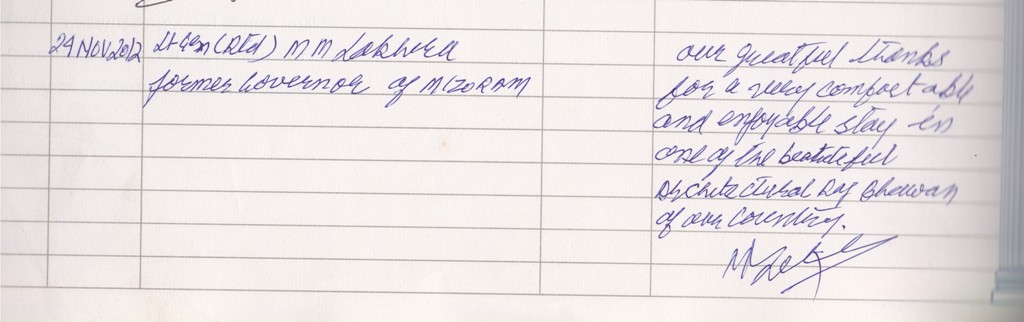 24 NOV 2012
Lt Gen (Rtd) M M Lakhera
former Governor of MIZORAM
our greatful thanks
for a very comfortable
and enjoyable stay in
one of the beautiful
Architectural Raj Bhawan
of our Country.